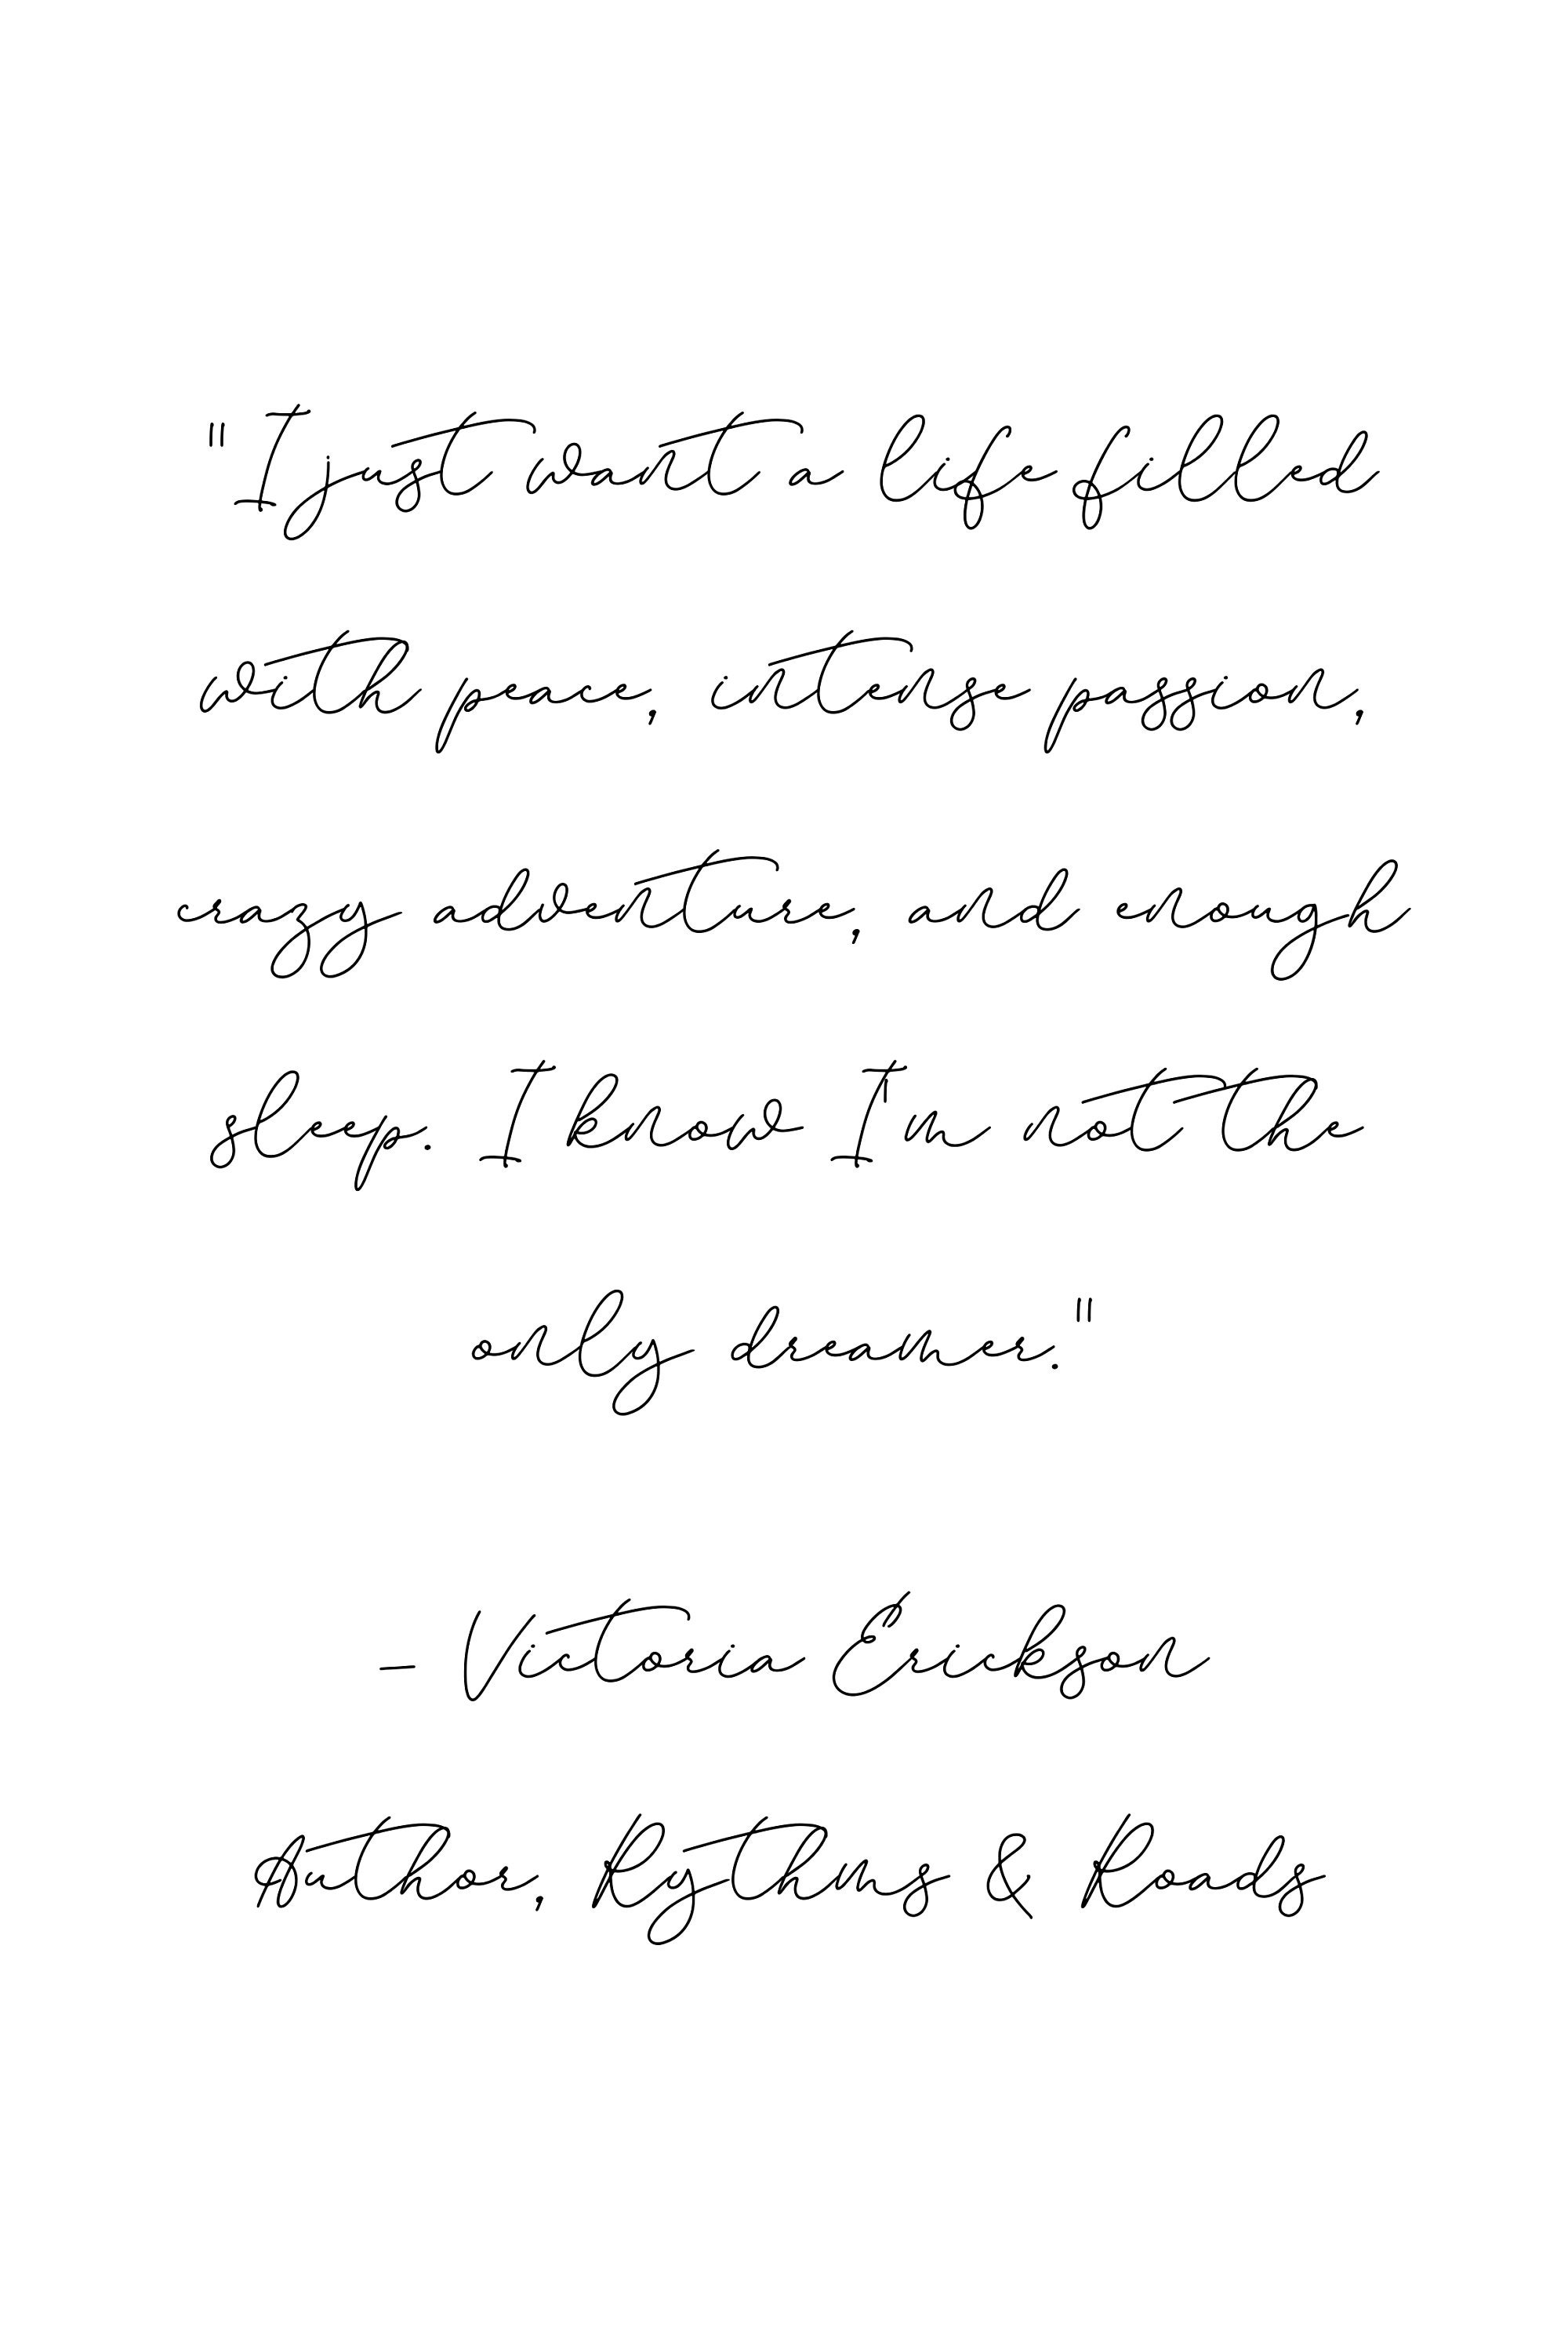 "I just want a life filled
with peace, intense passion,
crazy adventure, and enough
sleep. I know I'm not the
only dreamer."
– Victoria Erickson
Author, Rythms & Roads